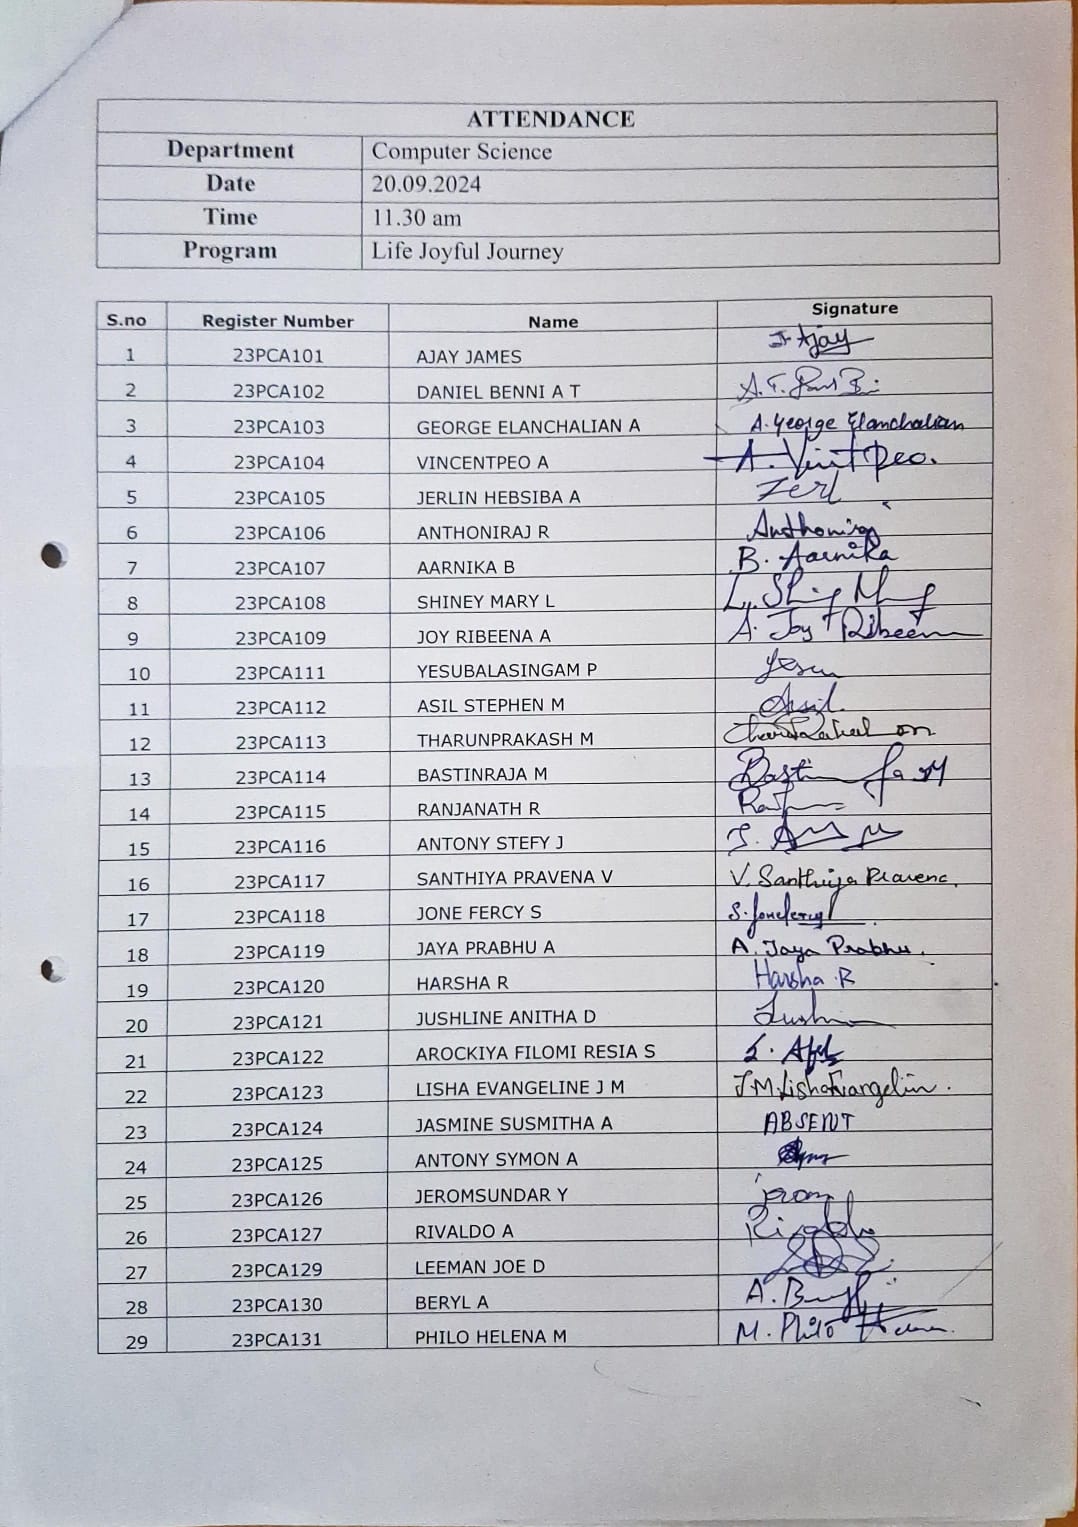 ATTENDANCE
Department Computer Science
Date 20.09.2024
Time 11.30 am
Program Life Joyful Journey
S.no Register Number Name Signature
1 23PCA101 AJAY JAMES J. Ajay
2 23PCA102 DANIEL BENNI A T
3 23PCA103 GEORGE ELANCHALIAN A A. George Elanchalian
4 23PCA104 VINCENTPEO A
5 23PCA105 JERLIN HEBSIBA A
6 23PCA106 ANTHONIRAJ R
7 23PCA107 AARNIKA B B. Aarnika
8 23PCA108 SHINEY MARY L
9 23PCA109 JOY RIBEENA A A. Joy Ribeena
10 23PCA111 YESUBALASINGAM P Yesu
11 23PCA112 ASIL STEPHEN M Asil.
12 23PCA113 THARUNPRAKASH M
13 23PCA114 BASTINRAJA M
14 23PCA115 RANJANATH R
15 23PCA116 ANTONY STEFY J
16 23PCA117 SANTHIYA PRAVENA V V. Santhiya Pravena.
17 23PCA118 JONE FERCY S
18 23PCA119 JAYA PRABHU A A. Jaya Prabhu.
19 23PCA120 HARSHA R Harsha R
20 23PCA121 JUSHLINE ANITHA D
21 23PCA122 AROCKIYA FILOMI RESIA S
22 23PCA123 LISHA EVANGELINE J M J.M. Lisha Evangelin.
23 23PCA124 JASMINE SUSMITHA A ABSENT
24 23PCA125 ANTONY SYMON A
25 23PCA126 JEROMSUNDAR Y jerom
26 23PCA127 RIVALDO A Rivaldo
27 23PCA129 LEEMAN JOE D
28 23PCA130 BERYL A
29 23PCA131 PHILO HELENA M M. Philo Helena.